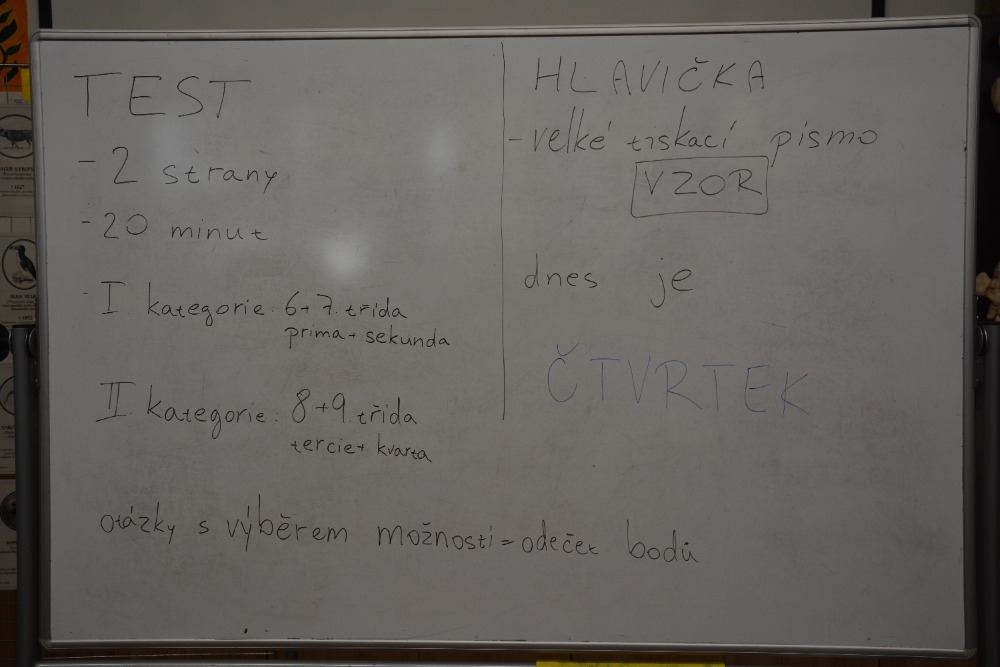 TEST
- 2 strany
- 20 minut
- I kategorie: 6+7. třída
prima + sekunda
II kategorie: 8+9. třída
tercie + kvarta
otázky s výběrem možností = odečet bodů
HLAVIČKA
- velké tiskací písmo
VZOR
dnes je
ČTVRTEK